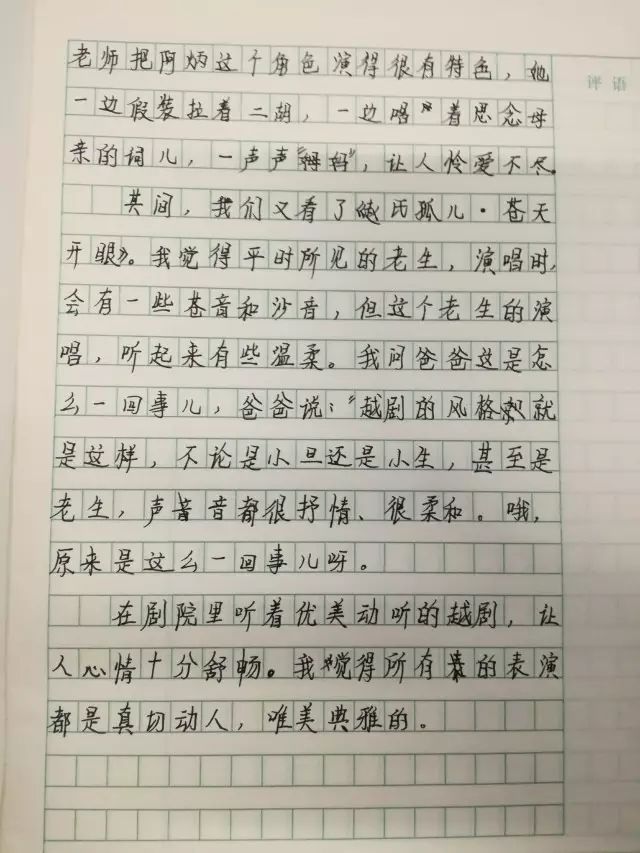 老师把阿炳这个角色演得很有特色，她
评语
一边假装拉着二胡，一边唱着思念母
亲的词儿，一声声“妈妈”，让人怜爱不尽。
其间，我们又看了赵氏孤儿·苍天
开眼》。我觉得平时所见的老生，演唱时，
会有一些苍音和沙音，但这个老生的演
唱，听起来有些温柔。我问爸爸这是怎
么一回事儿，爸爸说：“越剧的风格就
是这样，不论是小旦还是小生，甚至是
老生，声音都很抒情、很柔和。哦，
原来是这么一回事儿呀。
在剧院里听着优美动听的越剧，让
人心情十分舒畅。我觉得所有的表演
都是真切动人，唯美典雅的。